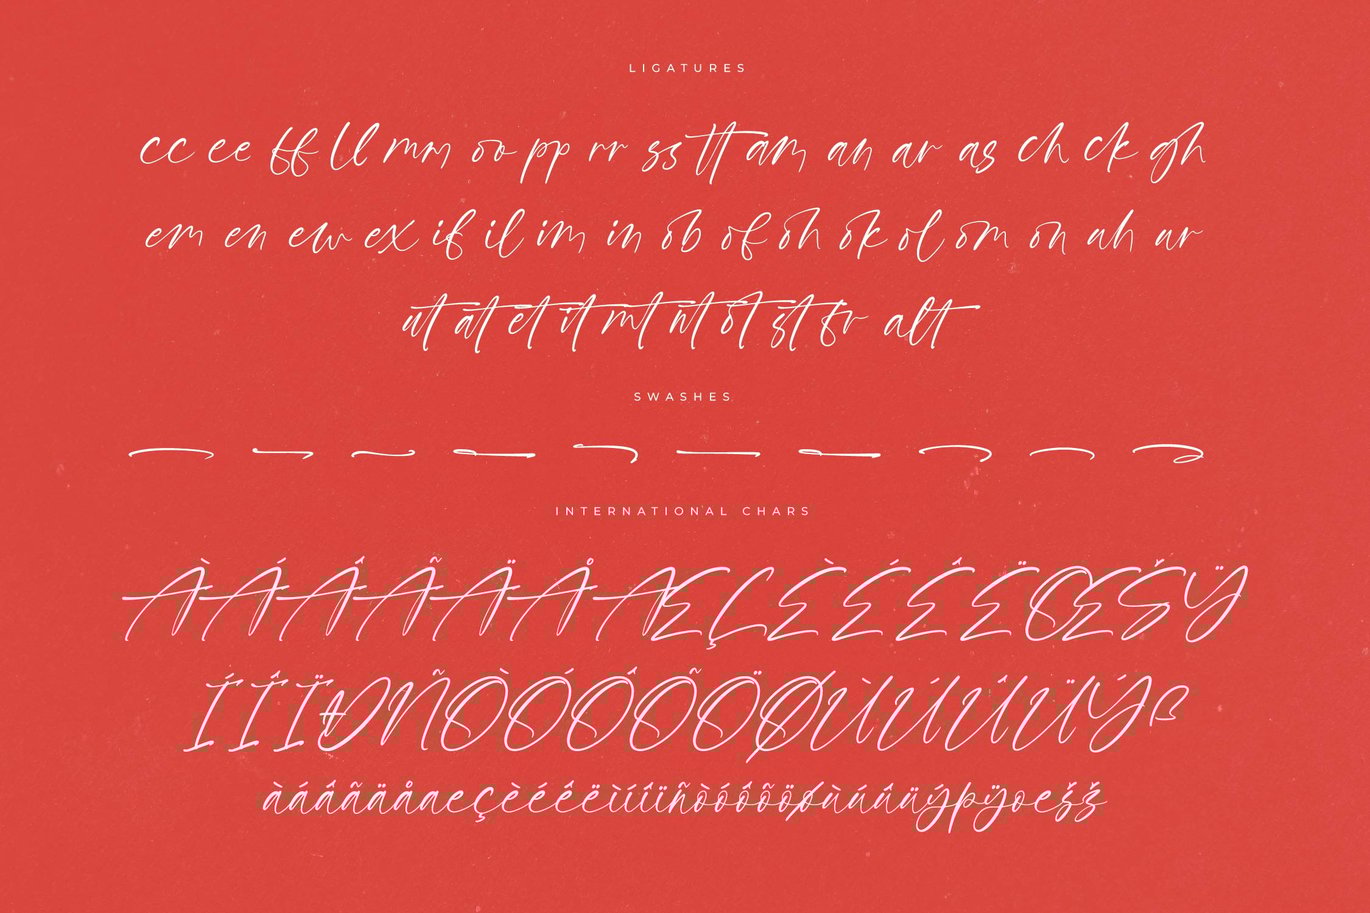 LIGATURES
cc ee ff ll mm oo pp rr ss tt am an ar as ch ck gh
em en ew ex if il im in ob of oh ok ol om on uh ur
ut at et it mt nt ot st fr alt
SWASHES
INTERNATIONAL CHARS
ÀÁÂÃÄÅÆÇÈÉÊËŒŠŸ
ÍÎÏÐÑÒÓÔÕÖØÙÚÛÜÝß
àáâãäåæçèéêëìíîïñòóôõöøùúûüýþÿœšž